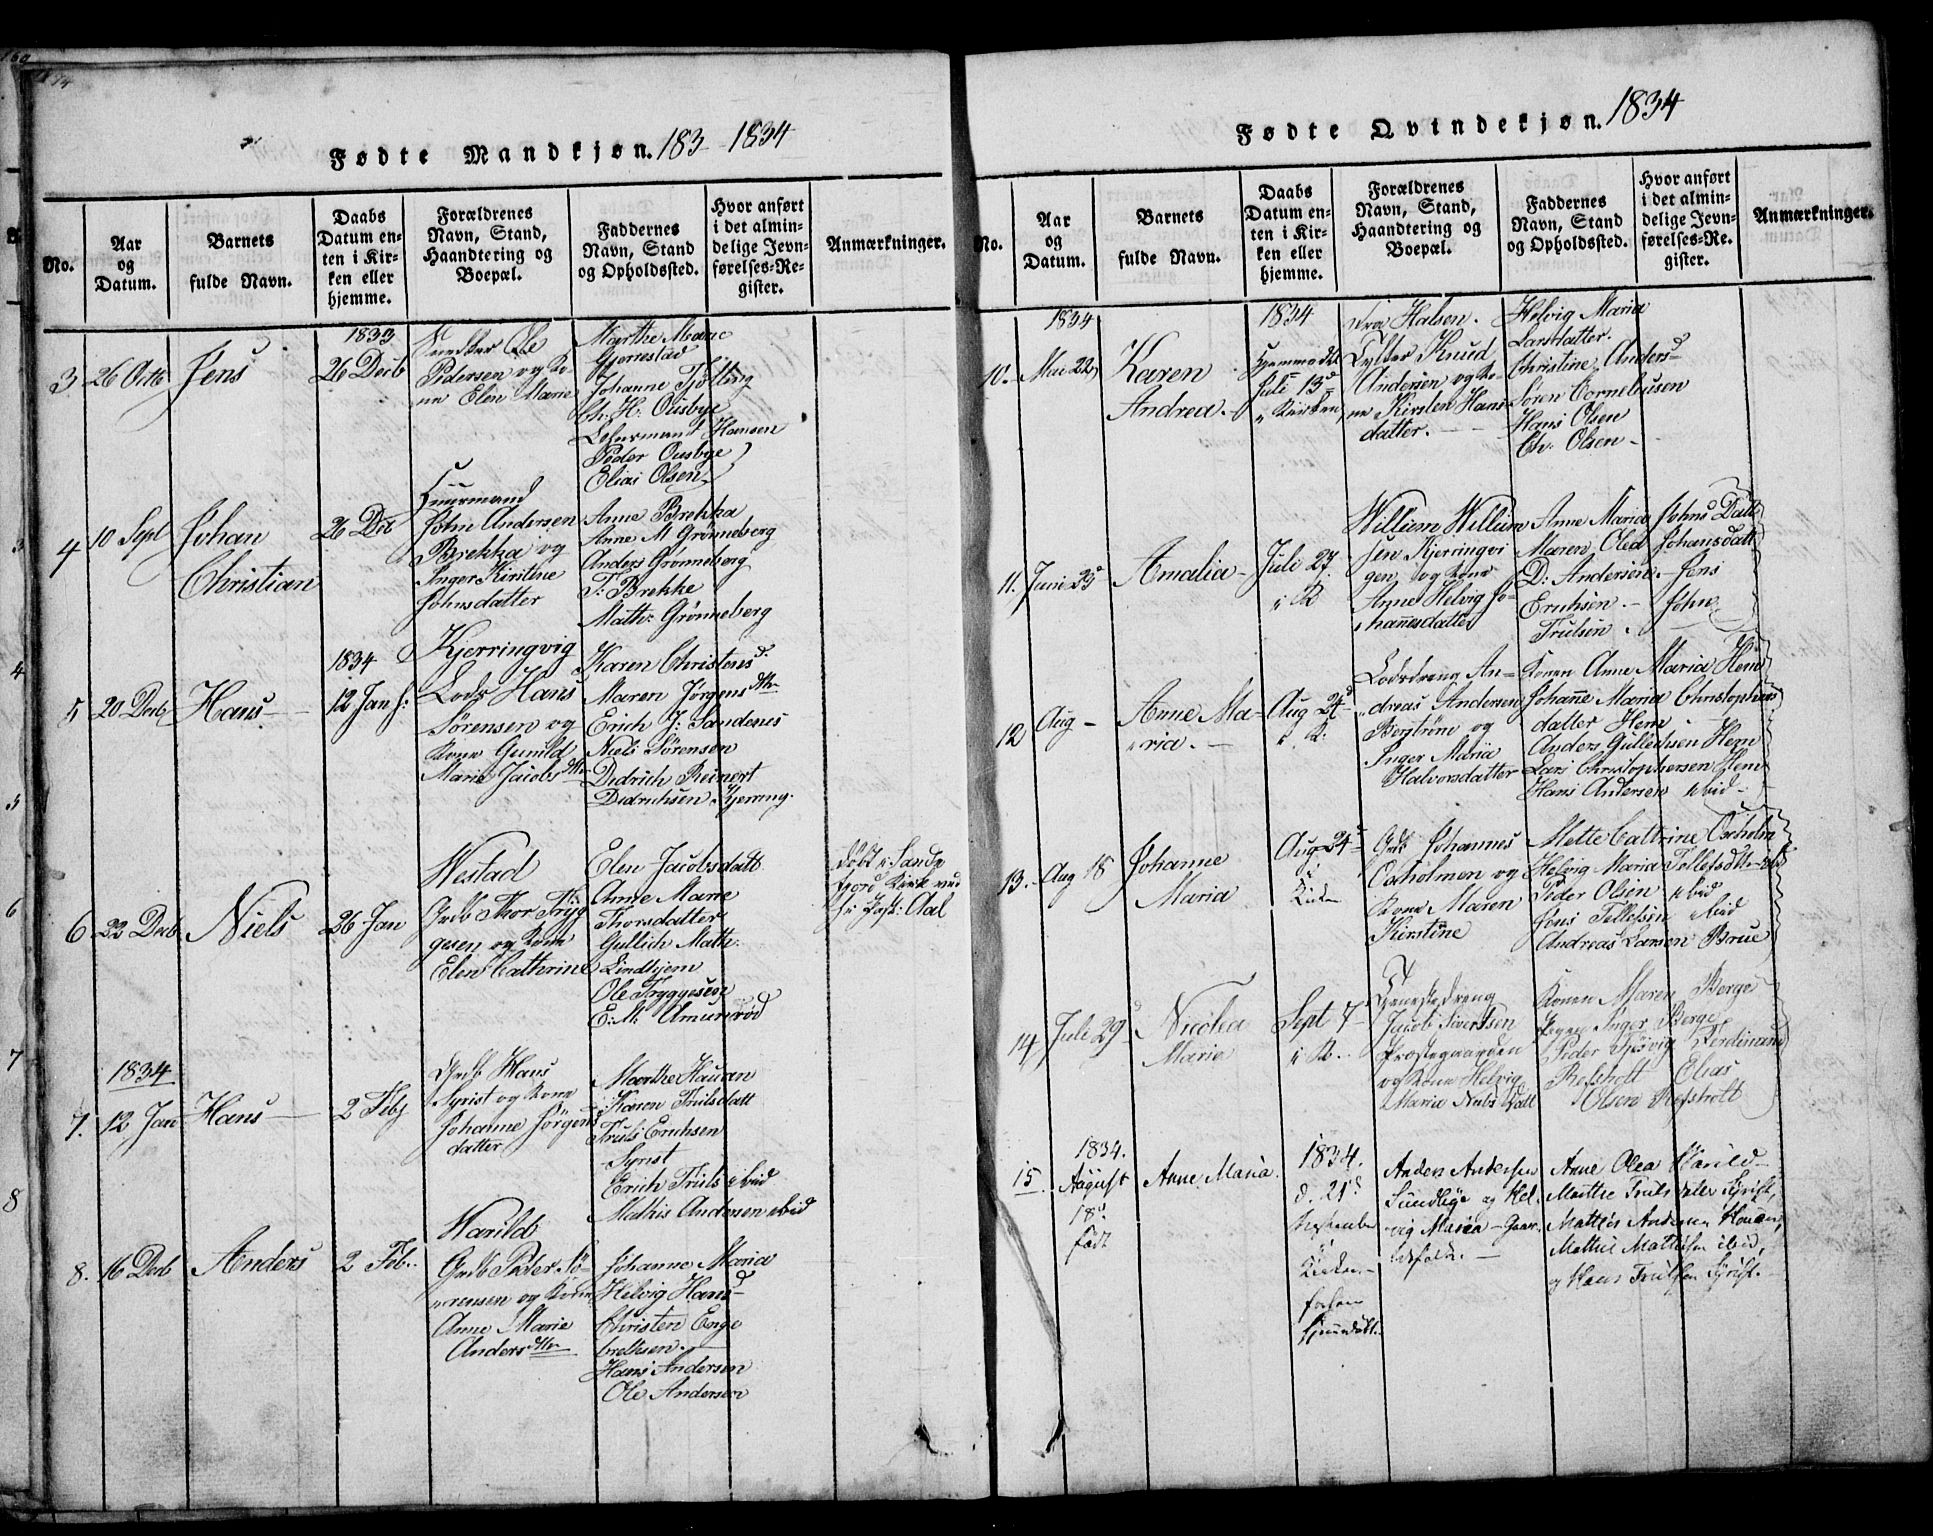 Fødte Mandkjøn. 183 - 1834
No.
Aar
og
Datum.
Barnets
fulde Navn.
Daabs
Datum en-
ten i Kir-
ken eller
hjemme.
Forældrenes
Navn, Stand,
Haandtering og
Boepæl.
Faddernes
Navn, Stand
og Opholdssted.
Hvor anført
i det almin-
delige Jevn-
førelses-Re-
gister.
Anmærkninger.
3
26 Octb
Jens
1833
26 Decb
Ole
Pedersen og Ko-
ne Elen Marie
Marthe Marie
Gjørrestad
Johanne Tjølling
Ch: H: Ousbye
Hansen
Peder Ousbye
Elias Olsen
4
10 Sept
Johan
Christian
26 Dec
Huusmand
John Andersen
Brekka og
Inger Kirstine
Johnsdatter
Anne Brekka
Anne M Grønneberg
Anders Grønneberg
T. Brekke
Math: Grønneberg
5
20 Decb
Hans
1834
12 Jan
Kjerringvig
Lods Hans
Sørensen og
Kone Gunild
Marie Jacobs dtr
Karen Christens d.
Maren Jørgens dtr
Erich J: Sandenes
Niels Sørensen
Didrich Reinert
Didrichsen Kjerring.
6
22 Decb
Niels
26 Jan
Westad
Grdb Thor Tryg
gesen og Kone
Elen Cathrine
Elen Jacobsdatt
Anne Marie
Thorsdatter
Gullich Math:
Lindhjem
Ole Tryggesen
E: M: Amundrød
døbt i Sande
fjord Kirk ved
Hr Past: Aal
1834
7.
12 Jan
Hans
2 Feb
Grdb Hans
Syrist og Kone
Johanne Jörgens
datter
Marthe Hauan
Karen Trulsdatt
Truls Erichsen
Syrist
Erich Truls ibid
Mathis Andersen ibid
8.
16 Decb
Anders
2 Feb.
Warild
Grdb Peder Sö-
rensen og Kone
Anne Marie
Anders dtr
Johanne Maria
Helvig Hans d
Christen Enge
brethsen.
Hans Andersen
Ole Andersen
Fødte Qvindekjøn. 1834
No.
Aar
og
Datum.
Barnets
fulde Navn.
Daabs
Datum en-
ten i Kir-
ken eller
hjemme.
Forældrenes
Navn, Stand,
Haandtering og
Boepæl.
Faddernes
Navn, Stand
og Opholdssted.
Hvor anført
i det almin-
delige Jevn-
førelses-Re-
gister.
Anmærkninger.
1834
10.
Mai 22
Karen
Andrea.
1834
Hjemmedøbt
Juli 13 d
i Kirken
Fra Halsen.
Knud
Andersen og Ko-
ne Kirsten Hans
datter.
Helvig Maria
Larsdatter.
Christine Anders d
Søren Corneliusen
Hans Olsen
Ch: Olsen
11.
Juni 25 d
Amalia
Juli 27
i K
Willum Willum
sen Kjerringvi
gen og Kone
Anne Helvig Jo-
hannesdatter
Anne Maria Johns Datt
Maren Olea Johansdatt
D: Andersen. Jens
Erichsen. John
Trulsen.
12
Aug
Anne Ma-
ria.
Aug 24 d
i K:
Lodsdreng An-
dreas Andersen
Bergstrøm og
Inger Maria
Halvorsdatter
Konen Anne Maria Hem
Johanne Maria Christophers
datter Hem
Anders Gullichsen Hem
Lars Christophersen Hem
Hans Andersen ibid
13.
Aug 18
Johanne
Maria
Aug 24 d
i
Kirken
Grdb Johannes
Oxholmen og
Kone Maren
Kirstine
Mette Cathrine Oxholm
Helvig Maria Tollefs dtr ibid
Peder Olsen ibid
Jens Tollefsen ibid
Andreas Larsen Brue
14
Juli 29 d
Nicolea
Maria
Sept 7
i K.
Tjenestedreng
Jacob Sivertsen
Præstegaarden
og Kone Helvig
Maria Niels Datt
Konen Maren Berge
Pigen Inger Berge
Peder Tjøsvig Ferdinand
Refsholt Elias
Olsen Refsholt
15.
1834.
August
18 d.
født
Anne Maria.
1834.
d. 21 d
September
i
Kirken.
forhen
hjemdøbt.
Anders Andersen
Sundlyge og Hel-
vig Maria
Anne Olea Harild
Marthe Truls datter Syrist,
Mathis Andersen Houan,
Mathis Mathisen ibid,
og Hans Trulsen Syrist.
3
4
5
6
7
8